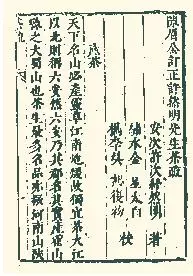 陳眉公訂正許然明先生茶疏
安次許次紓然明 著
繡水金 星太白
橋李 校
產茶
天下名山必產靈草江南地煖故獨宜茶大江
以北則稱六安然六安乃其郡名其實產霍山
縣之大蜀山也茶生最多名品亦振河南山陝